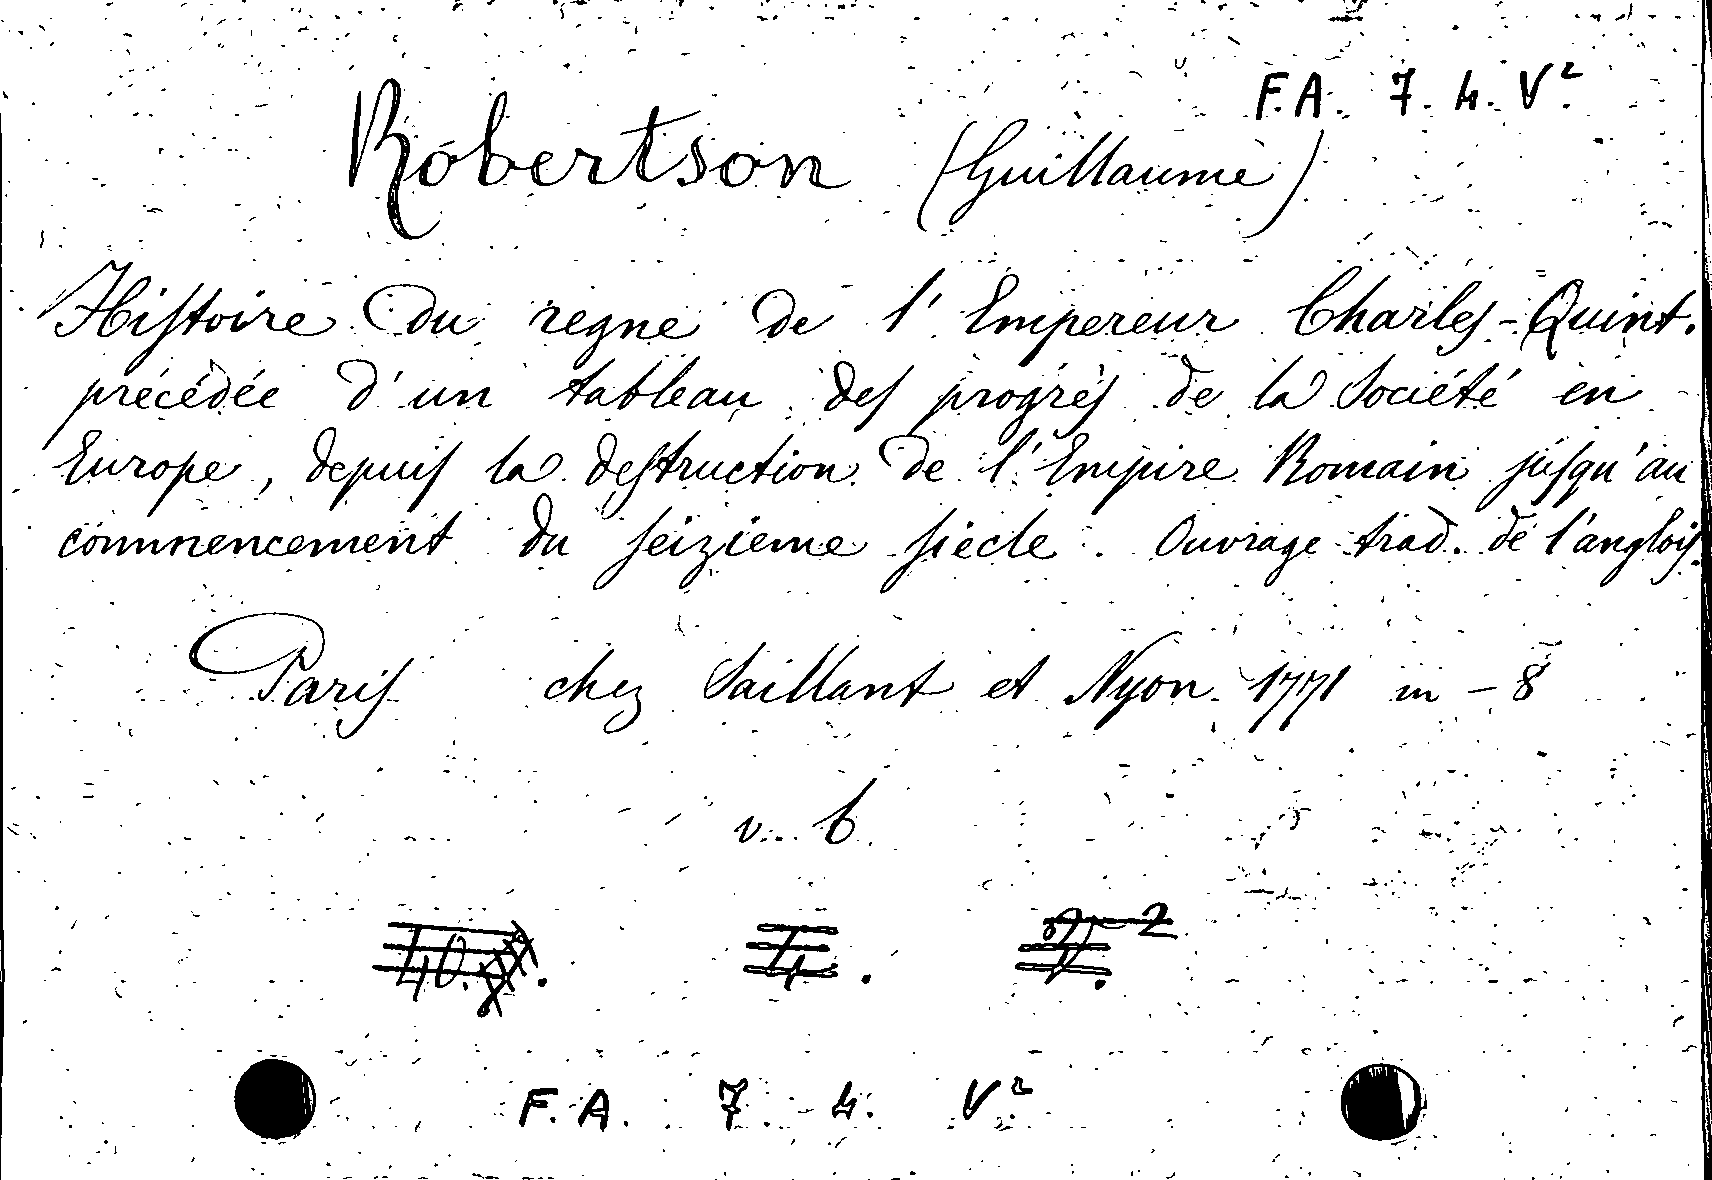 F.A. 7. 4. V².
Robertson (Guillaume)
Hiſtoire du regne de l'Empereur Charleſ-Quint.
précédée d'un tableau deſ progrèſ de la Société en
Europe, depuiſ la deſtruction de l'Empire Romain juſqu'au
commencement du ſeizieme ſiècle. Ouvrage trad. de l'angloiſ.
Pariſ chez Saillant et Nyon 1771 in-8
v. 6
40.
4.
F.A. 7. 4. V²